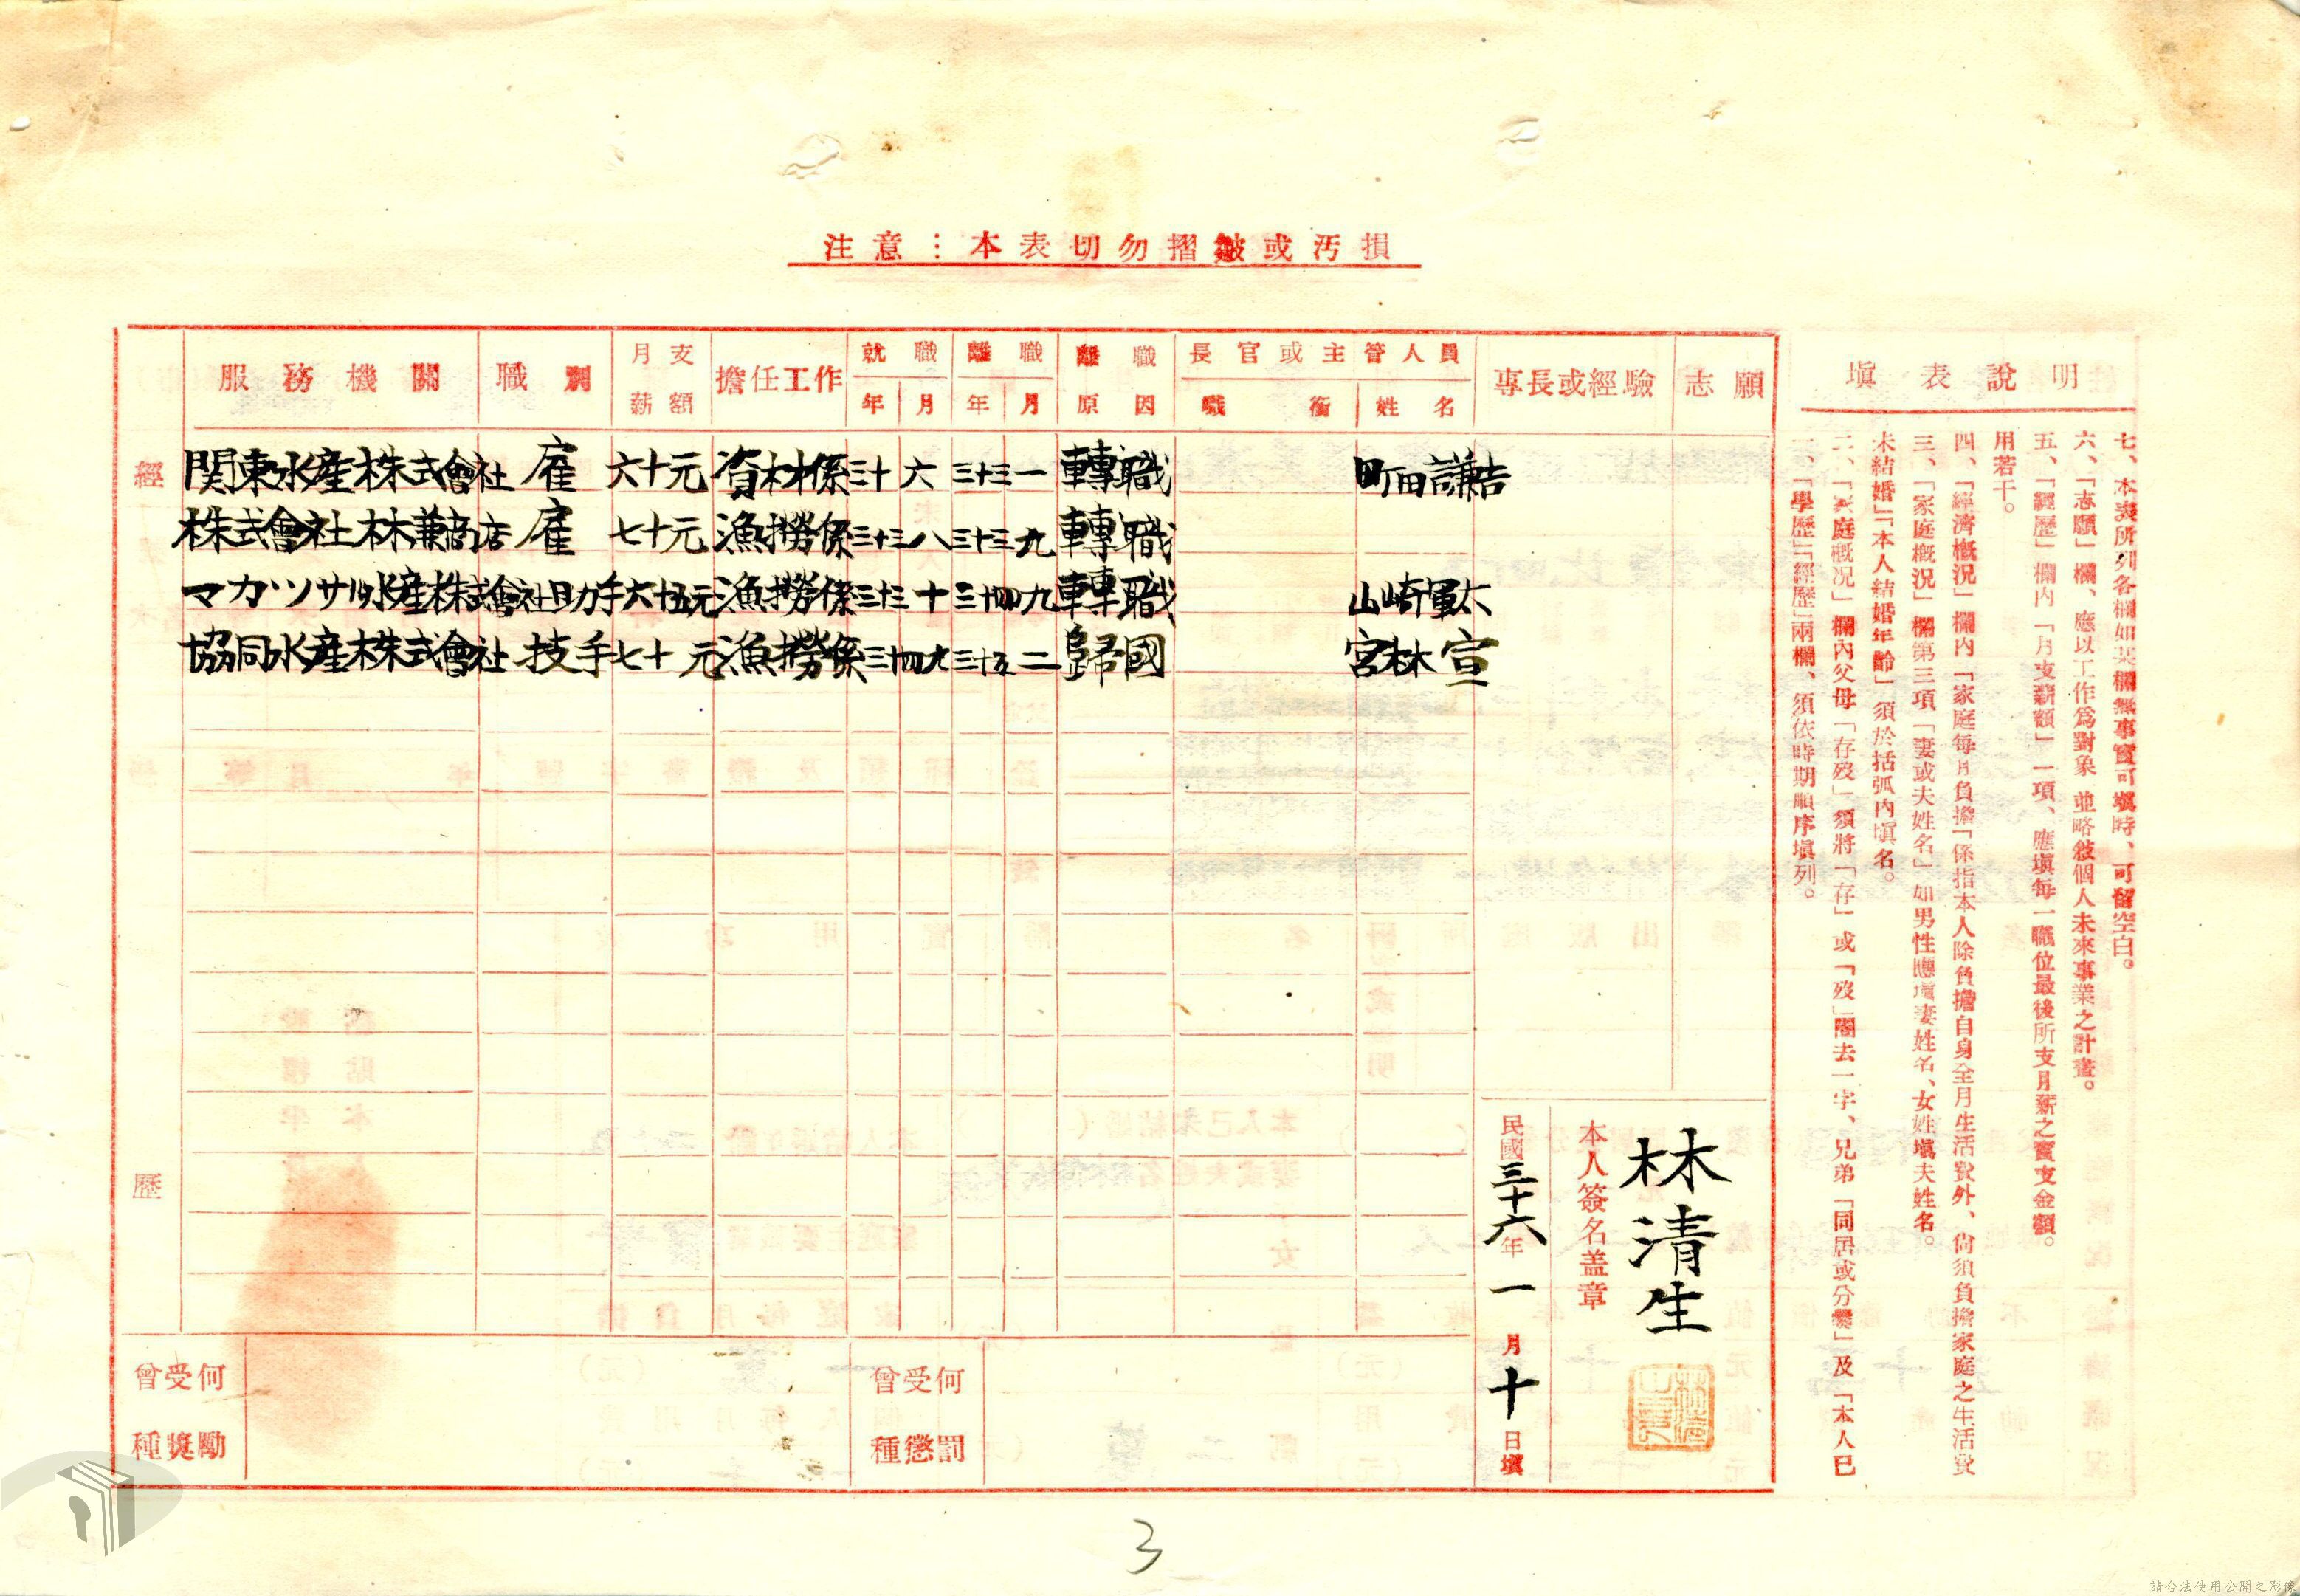 注意：本表切勿摺皺或汚損
服務機關 職別 月支薪額 擔任工作 就職年月 離職年月 離職原因 長官或主管人員 職銜 姓名 專長或經驗 志願
經歷
関東水産株式會社 雇 六十元 資材係 三十 六 三十三 一 轉職 町田謙吉
株式會社林兼商店 雇 七十元 漁撈係 三十三 八 三十三 九 轉職
マカッサル水産株式會社 助手 六十五元 漁撈係 三十三 十 三十四 九 轉職 山崎軍太
協同水産株式會社 技手 七十元 漁撈係 三十四 九 三十五 二 歸國 宮林宣
曾受何種獎勵
曾受何種懲罰
本人簽名盖章
林清生
民國三十六年一月十日塡
塡表說明
一、「學歷」「經歷」兩欄、須依時期順序塡列。
二、「家庭概況」欄內父母「存歿」須將「存」或「歿」圈去一字、兄弟「同居或分爨」及「本人已
未結婚」「本人結婚年齡」須於括弧內塡名。
三、「家庭概況」欄第三項「妻或夫姓名」如男性應塡妻姓名、女姓塡夫姓名。
四、「經濟概況」欄內「家庭每月負擔「係指本人除負擔自身全月生活費外、尙須負擔家庭之生活費
用若干。
五、「經歷」欄內「月支薪額」一項、應塡每一職位最後所支月薪之實支金額。
六、「志願」欄、應以工作爲對象並略敍個人未來事業之計畫。
七、本表所列各欄如某欄無事實可塡時、可留空白。
3
請合法使用公開之影像